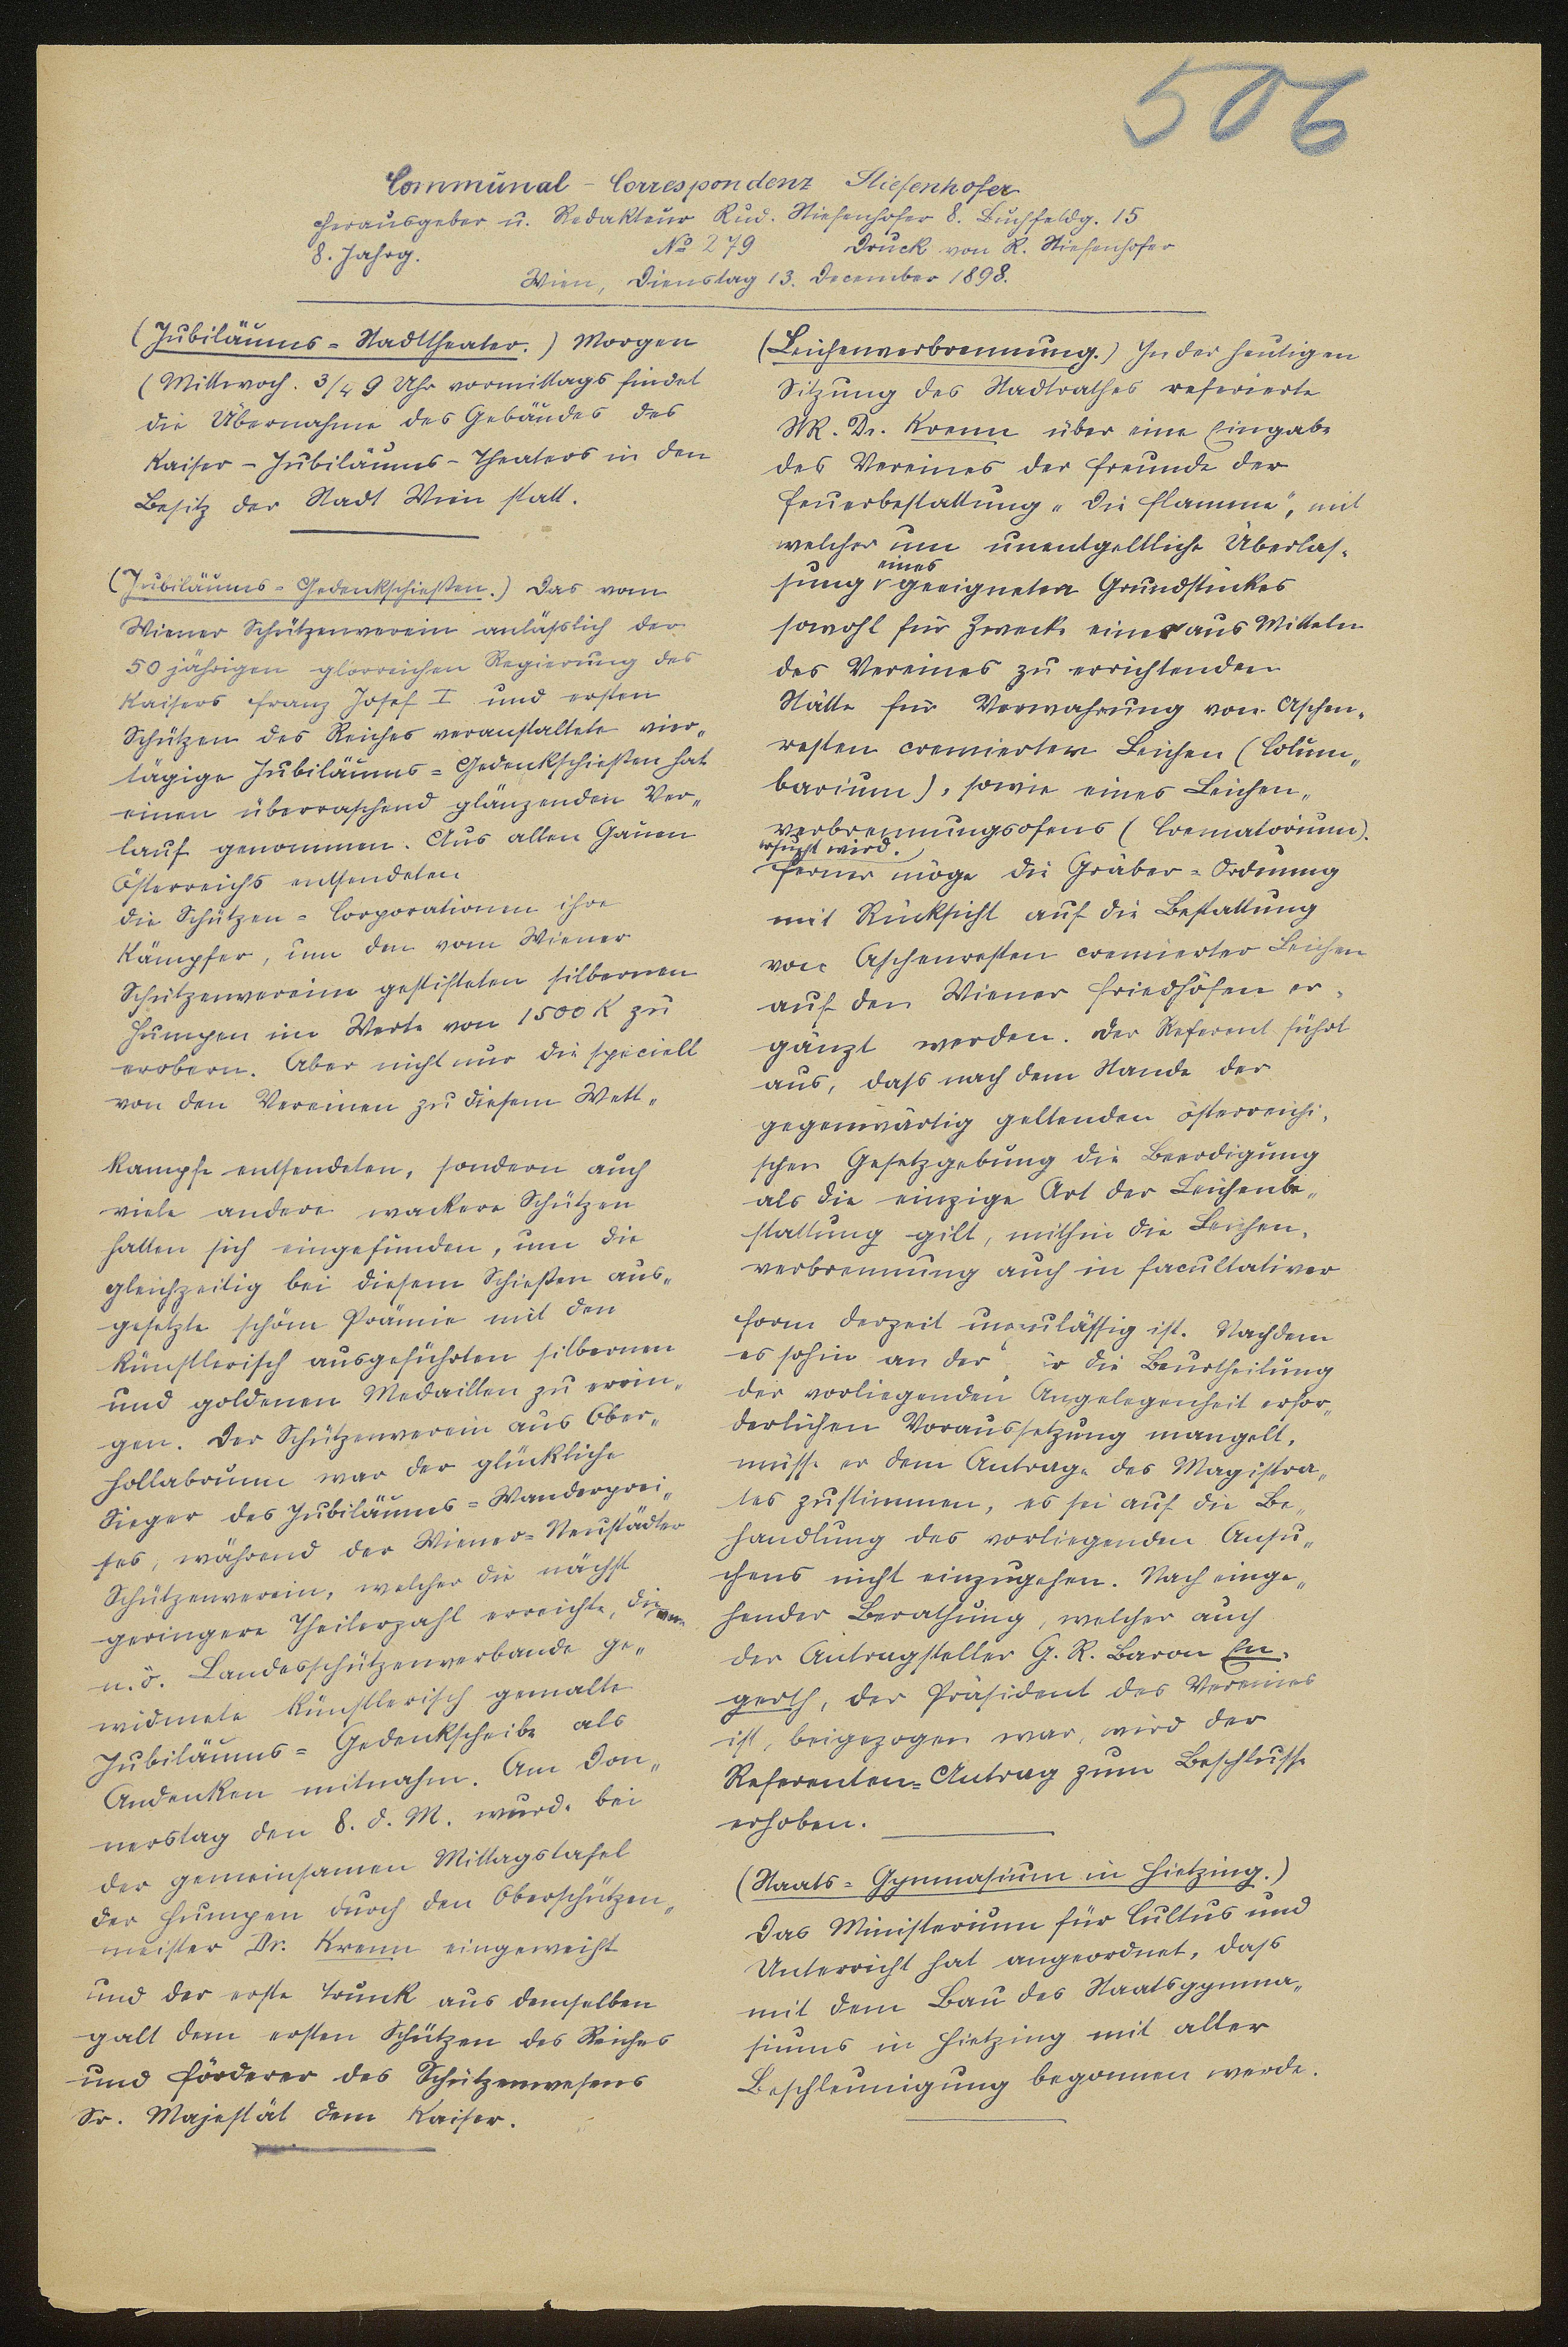 506
Communal - Correspondenz Stiefenhofer
Herausgeber u. Redakteur Rud. Stiefenhofer 8. Buchfeldg. 15
8. Jahrg. No 279 Druck von R. Stiefenhofer
Wien, Dienstag 13. December 1898.
(Jubiläums=Stadttheater.) Morgen
(Mittwoch. 3/4 9 Uhr vormittags findet
die Übernahme des Gebäudes des
Kaiser-Jubiläums-Theaters in den
Besitz der Stadt Wien statt.
(Jubiläums=Gedenkschießen.) Das vom
Wiener Schützenverein anläßlich der
50 jährigen glorreichen Regierung des
Kaisers Franz Josef I und ersten
Schützen des Reiches veranstaltete vier„
tägige Jubiläums=Gedenkschießen hat
einen überraschend glänzenden Ver„
lauf genommen. Aus allen Gauen
Österreichs entsendeten
die Schützen=Corporationen ihre
Kämpfer, um den vom Wiener
Schützenvereine gestifteten silbernen
Humpen im Werte von 1500 K zu
erobern. Aber nicht nur die speciell
von den Vereinen zu diesem Wett„
kampfe entsendeten, sondern auch
viele andere wackere Schützen
hatten sich eingefunden, um die
gleichzeitig bei diesem Schießen aus„
gesetzte schöne Prämie mit den
künstlerisch ausgeführten silbernen
und goldenen Medaillen zu errin„
gen. Der Schützenverein aus Ober„
hollabrunn war der glückliche
Sieger des Jubiläums=Wanderprei„
ses, während der Wiener=Neustädter
Schützenverein, welcher die nächst
geringere Theilerzahl erreichte, die vom
n.ö. Landesschützenverbande ge„
widmete künstlerisch gemalte
Jubiläums=Gedenkscheibe als
Andenken mitnahm. Am Don„
nerstag den 8. d. M. wurde bei
der gemeinsamen Mittagstafel
der Humpen durch den Oberschützen„
meister Dr. Krenn eingeweiht
und der erste Trunk aus demselben
galt dem ersten Schützen des Reiches
und Förderer des Schützenwesens
Sr. Majestät dem Kaiser.
(Leichenverbrennung.) In der heutigen
Sitzung des Stadtrathes referierte
StR. Dr. Krenn über eine Eingabe
des Vereines der Freunde der
Feuerbestattung „Die Flamme“, mit
welcher um unentgeltliche Überlas„
sung eines geeigneten Grundstückes
sowohl für Zwecke einer aus Mitteln
des Vereines zu errichtenden
Stätte für Verwahrung von Aschen„
resten cremierter Leichen (Colum„
barium), sowie eines Leichen„
verbrennungsofens (Crematorium).
ersucht wird.
Ferner möge die Gräber=Ordnung
mit Rücksicht auf die Bestattung
von Aschenresten cremierter Leichen
auf den Wiener Friedhöfen er„
gänzt werden. Der Referent führt
aus, dass nach dem Stande der
gegenwärtig geltenden österreichi„
schen Gesetzgebung die Beerdigung
als die einzige Art der Leichenbe„
stattung gilt, mithin die Leichen„
verbrennung auch in facultativer
Form derzeit unzulässig ist. Nachdem
es sohin an der für die Beurtheilung
der vorliegenden Angelegenheit erfor„
derlichen Voraussetzung mangelt,
müsse er dem Antrage des Magistra„
tes zustimmen, es sei auf die Be„
handlung des vorliegenden Ansu„
chens nicht einzugehen. Nach einge„
hender Berathung, welcher auch
der Antragsteller G. R. Baron En„
gerth, der Präsident des Vereines
ist, beigezogen war, wird der
Referenten=Antrag zum Beschlusse
erhoben.
(Staats=Gymnasium in Hietzing.)
Das Ministerium für Cultus und
Unterricht hat angeordnet, dass
mit dem Bau des Staatsgymna„
siums in Hietzing mit aller
Beschleunigung begonnen werde.